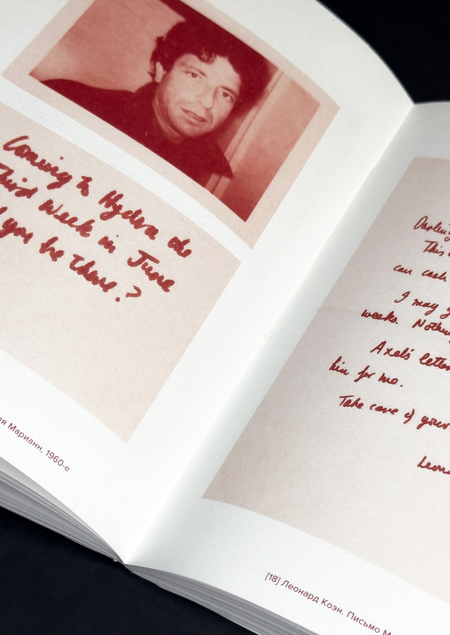 Coming to Hydra the
Third Week in June
you be there?
Марианн, 1960-е
Darlin
This
can cash
I may
weeks. Nothin
Axel's letter
him for me.
Take care of your
Leona
[18] Леонард Коэн. Письмо М